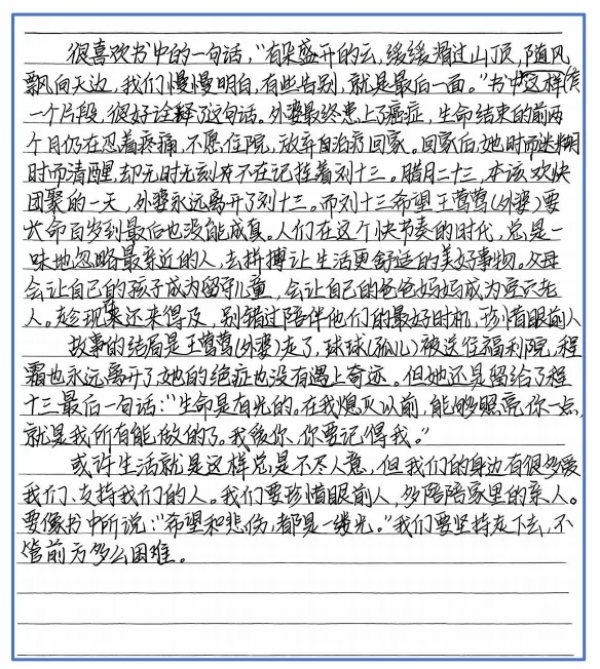 很喜欢书中的一句话，"有朵盛开的云，缓缓滑过山顶，随风
飘向天边，我们慢慢明白，有些告别，就是最后一面。"书中这样有
一个片段，很好诠释了这句话。外婆最终患上了癌症，生命结束的前两
个月仍在忍着疼痛，不愿住院，放弃自治疗回家。回家后，她时而迷糊
时而清醒，却无时无刻不在记挂着刘十三。腊月二十三，本该欢快
团聚的一天，外婆永远离开了刘十三。而刘十三希望王莺莺(外婆)要
长命百岁到最后也没能成真。人们在这个快节奏的时代，总是一
味地忽略最亲近的人，去拼搏让生活更舒适的美好事物。父母
会让自己的孩子成为留守儿童，会让自己的爸爸妈妈成为空巢老
人。趁现在还来得及，别错过陪伴他们的最好时机，珍惜眼前人
故事的结局是王莺莺(外婆)走了，球球(孤儿)被送往福利院，程
霜也永远离开了，她的绝症也没有遇上奇迹。但她还是留给了程
十三最后一句话："生命是有光的。在我熄灭以前，能够照亮你一点，
就是我所有能做的了。我爱你，你要记得我。"
或许生活就是这样总是不尽人意，但我们的身边有很多爱
我们、支持我们的人。我们要珍惜眼前人，多陪陪家里的亲人。
要像书中所说："希望和悲伤，都是一缕光。"我们要坚持走下去，不
管前方多么困难。